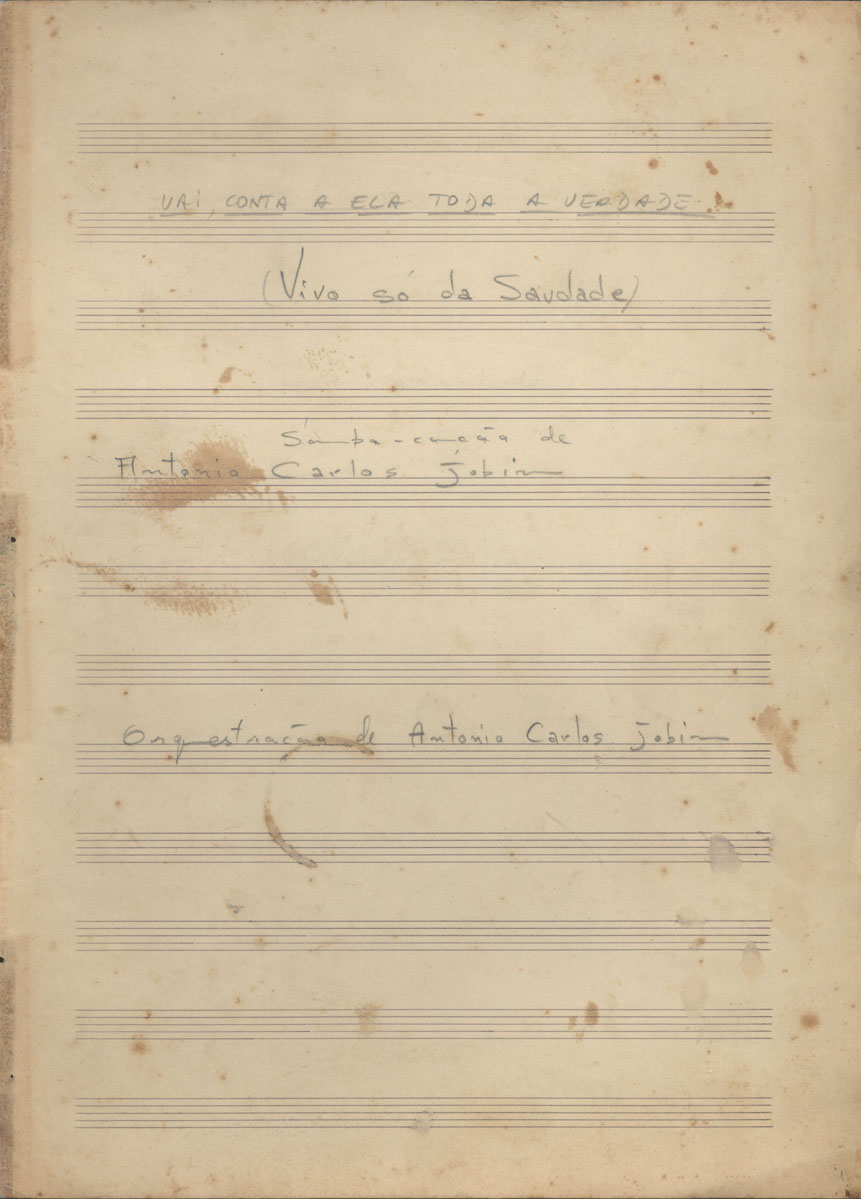 VAI, CONTA A ELA TODA A VERDADE
(Vivo só da Saudade)
Samba-canção de
Antonio Carlos Jobim
Orquestração de Antonio Carlos Jobim